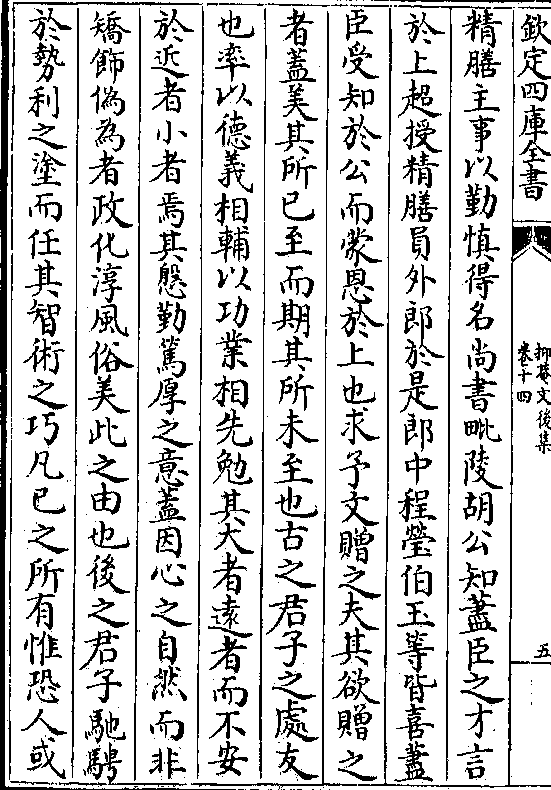 欽定四庫全書
抑菴文後集
卷十四
五
精膳主事以勤慎得名尚書毗陵胡公知藎臣之才言
於上超授精膳員外郎於是郎中程瑩伯玉等皆喜藎
臣受知於公而蒙恩於上也求予文贈之夫其欲贈之
者蓋美其所已至而期其所未至也古之君子之處友
也率以德義相輔以功業相先勉其大者遠者而不安
於近者小者焉其慇勤篤厚之意蓋因心之自然而非
矯飾偽為者政化淳風俗美此之由也後之君子馳騁
於勢利之塗而任其智術之巧凡已之所有惟恐人或